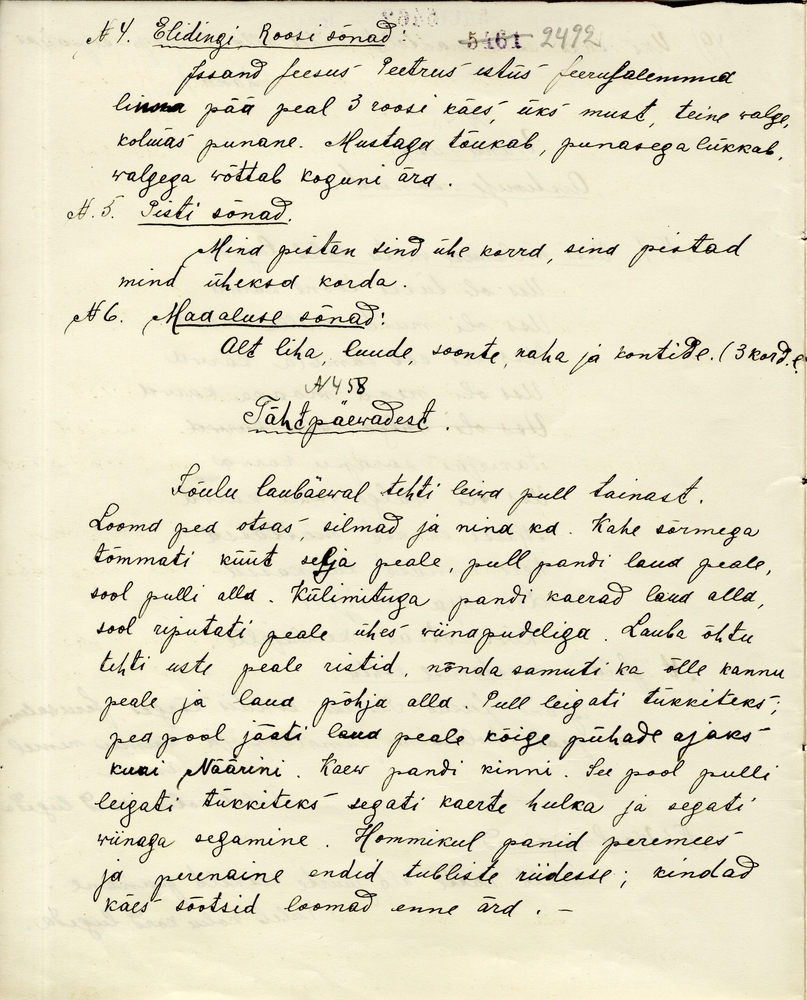 N 4. Elidingi Roosi sõnad: 5461 2492
Issand Jeesus Peetrus istus Jeerusalemma
linna pää peal 3 roosi käes, üks must, teine walge,
kolmas punane. Mustaga tõukab, punasega lükkab,
walgega wõttab koguni ärd.
N. 5. Pisti sõnad.
Mind pistan sind ühe korrd, sind pistad
mind üheksd korda.
N 6. Madaluse sõnad:
Alt liha, luude, soonte, naha ja kontide. (3 kord.)
N 458
Tähtpäewadest.
Jõulu laubäewal tehti leiwd pull tainast.
Loomd ped otsas, silmad ja nina kd. Kahe sõrmega
tõmmati küüt selja peale, pull pandi laud peale,
sool pulli alld. Külimituga pandi kaerad laud alld,
sool riputati peale ühes wiinapudeliga. Lauba õhtu
tehti uste peale ristid, nõnda samuti ka õlle kannu
peale ja laud põhja alld. Pull leigati tükkiteks;
ped pool jääti laud peale kõige pühade ajaks
kuni Näärini. Kaew pandi kinni. See pool pulli
leigati tükkiteks segati kaerte hulka ja segati
wiinaga segamine. Hommikul panid peremees
ja perenaine endid tubliste riidesse; kindad
käes söötsid loomad enne ärd. —